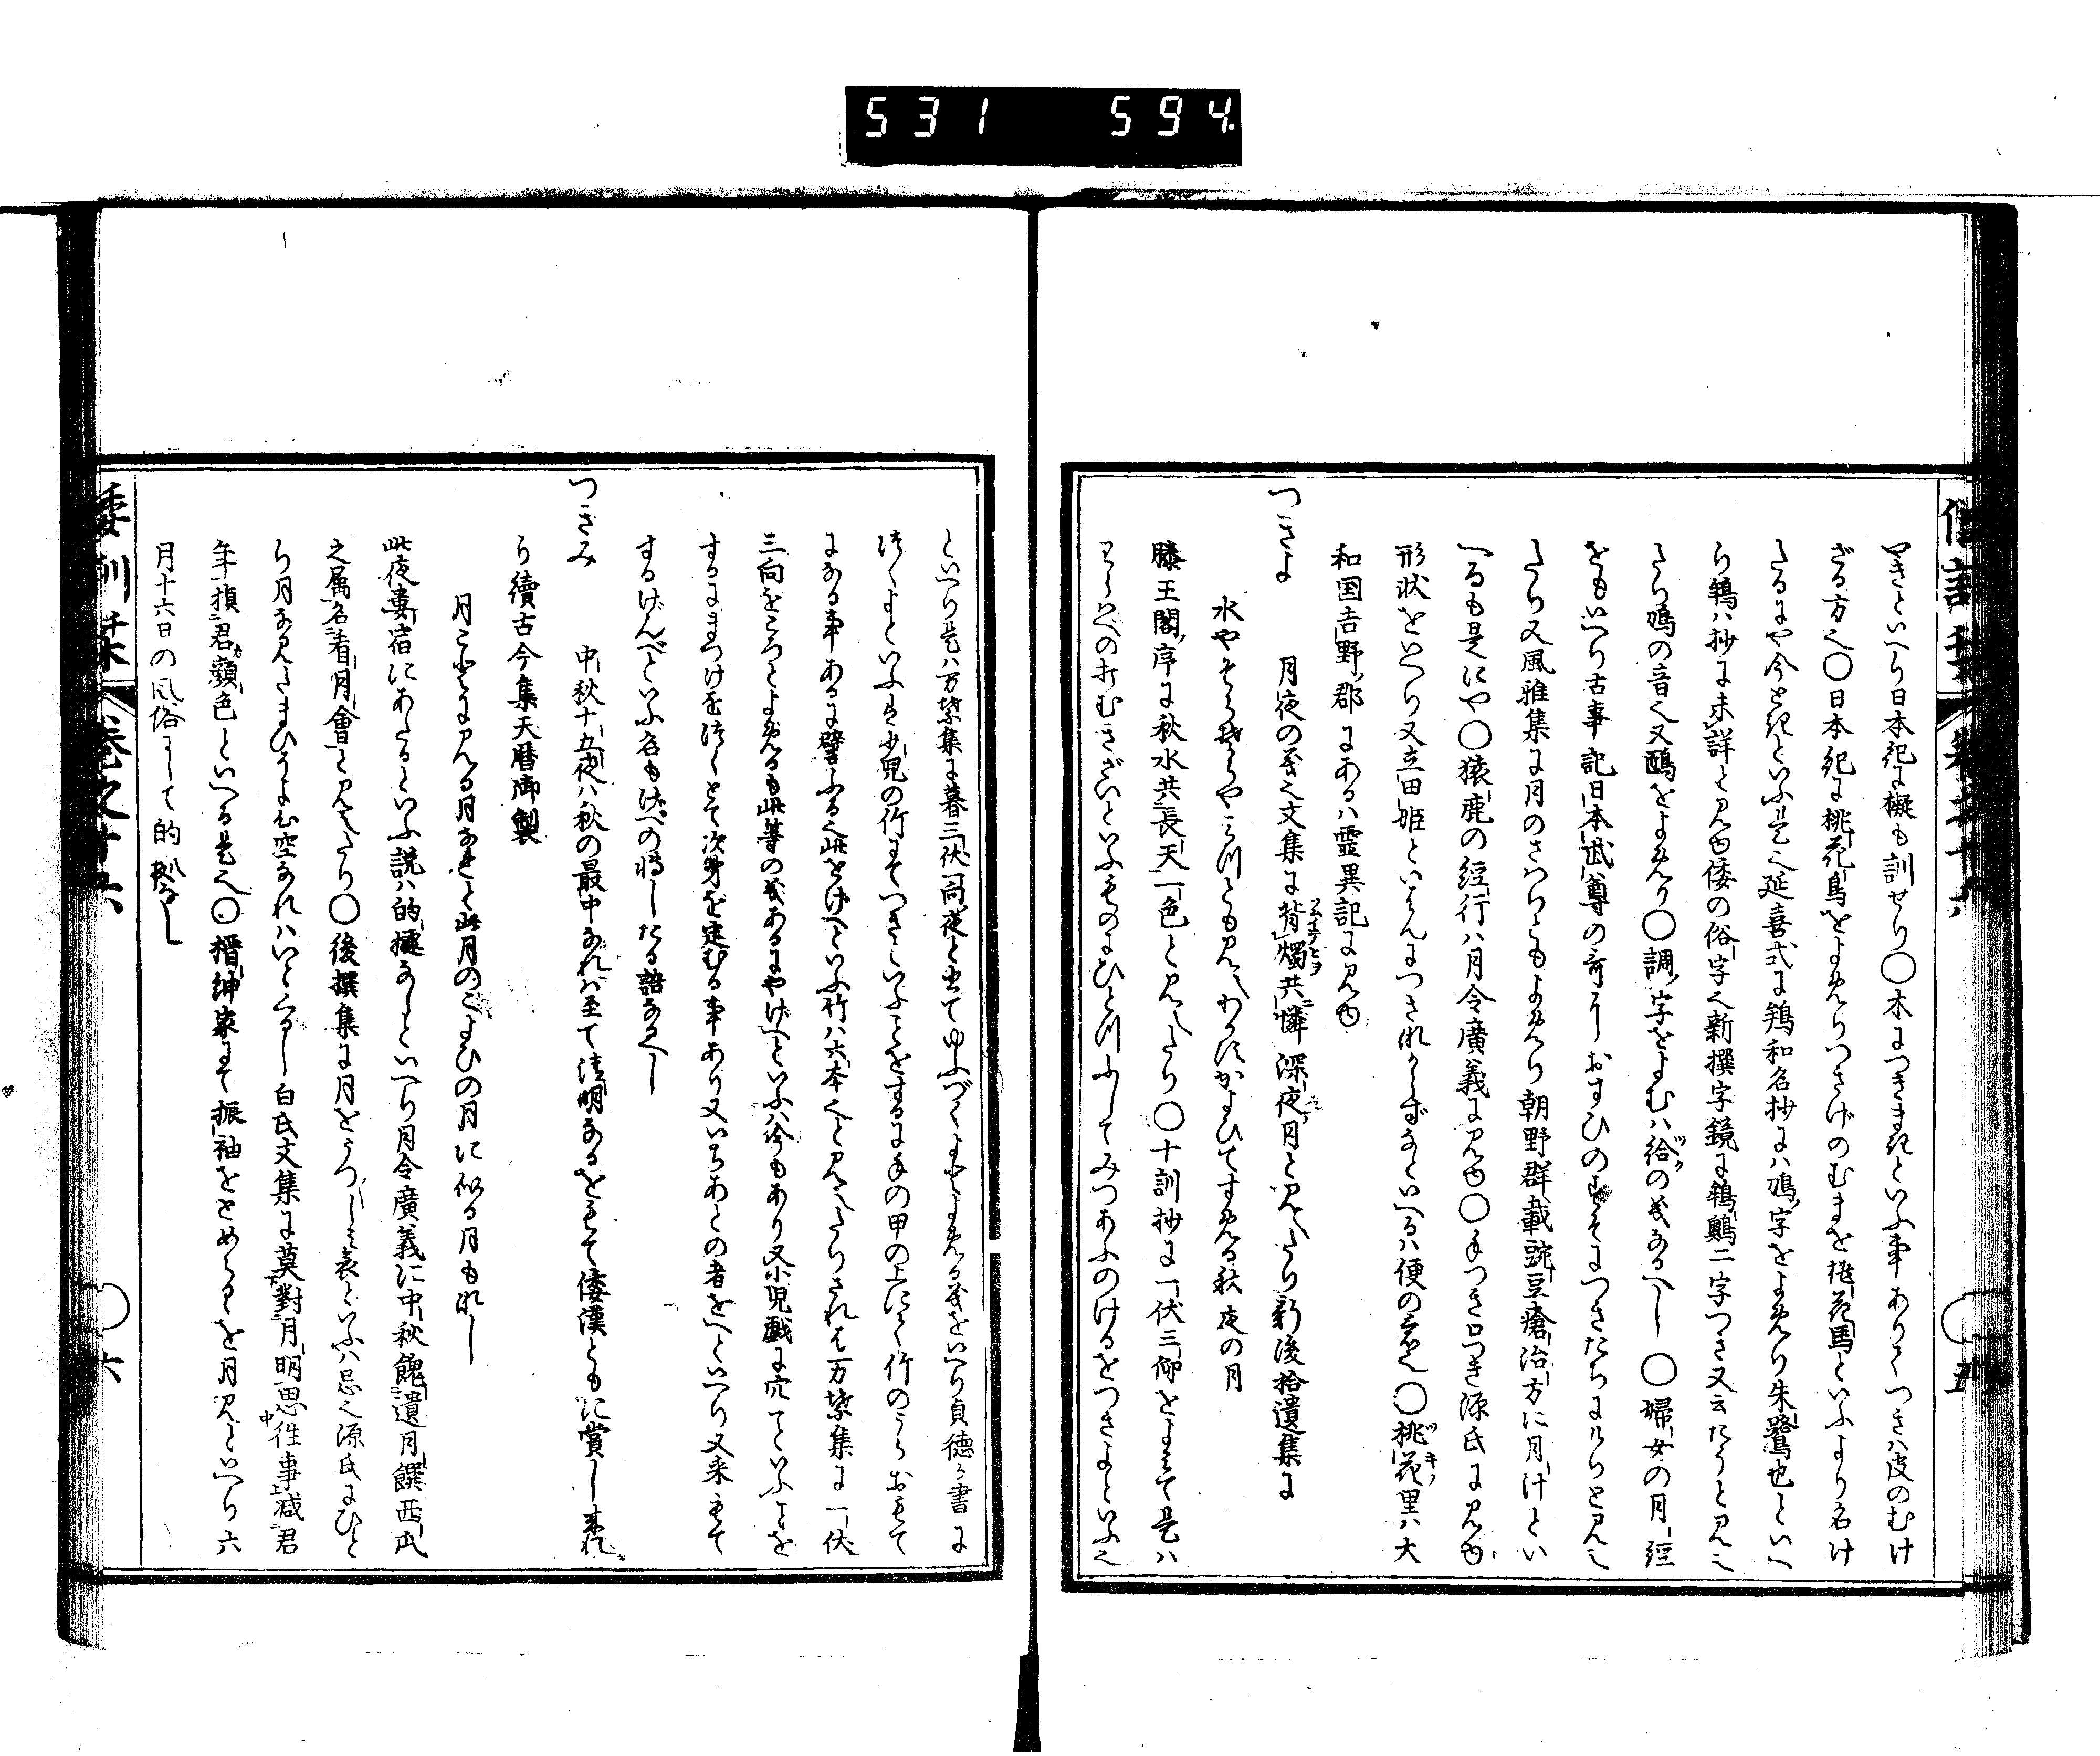 531 594
つきといへり日本紀に擬も訓せり〇木につきま紀といふ事ありてつきハ皮のむけ
ざる方也〇日本紀に桃花鳥をよめりつきげのむまを桃花馬といふより名け
たるにや今ときといふ是也延喜式に鴾和名抄にハ鴇字をよめり朱鷺也といへ
り鵇ハ抄に未詳と見ゆ倭の俗字也新撰字鏡に鵇鷏二字つき又云たうと見え
たり鴇の音也又鵐をよめり〇調字をよむハ給の義なるへし〇婦女の月經
をもいへり古事記日本武尊の哥におすひのすそにつきたちにけりと見え
たり又風雅集に月のさはりともよめり朝野群載豌豆瘡治方に月汁とい
へるも是にや〇猿鹿の經行ハ月令廣義に見ゆ〇手つき口つき源氏に見ゆ
形状をいへり又立田姫といはんにつきなからずなといへるハ便の意也〇桃花里ハ大
和国吉野郡にあるハ霊異記に見ゆ
つきよ 月夜の義也文集に背燭共憐深夜月と見えたり新後拾遺集に
水やそらそらや水とも見えわかすかよひてすめる秋夜の月
滕王閣序に秋水共長天一色と見えたり〇十訓抄に一伏三仰をよみて是ハ
わらハべの打むきさいといふものにひとつふしてみつあふのけるをつきよといふ也
といへり是ハ万葉集に暮三伏一向夜と出てゆふづくよとよめる義をいへり貞徳の書に
つくよといふは少児の竹にてつきといふことをするに手の甲の上にて竹のうらおもて
になる事あるに譬ふる也此をけべといふ竹ハ六本也と見えたりされは万葉集に一伏
三向をころとよめるも此等の義あるにやけべといふハ今もあり又小児戯に穴てといふことを
するにまつけをつくとて次第を定むる事あり又いちあとの者をべといへり又采もて
するげんべといふ名もけべの転したる語なるへし
つきみ 中秋十五夜ハ秋の最中なれハ至て清明なるをもて倭漢ともに賞し来れ
り續古今集天暦御製
月ことに見る月なれと此月のこよひの月に似る月もなし
此夜婁宿にあたるといふ説ハ的據なしといへり月令廣義に中秋餽遺月饌西瓜
之属名看月會と見えたり〇後撰集に月をうつしミ哀といふハ忌也源氏にひと
り月な見たまひそよ心空なれハいとくるし白氏文集に莫對月明思往事減君
年損君顔色といへる是也〇搢紳家にて振袖をとめらるゝを月見といへり六
月十六日の風俗にして的拠なし
倭訓栞 巻之十六 〇六